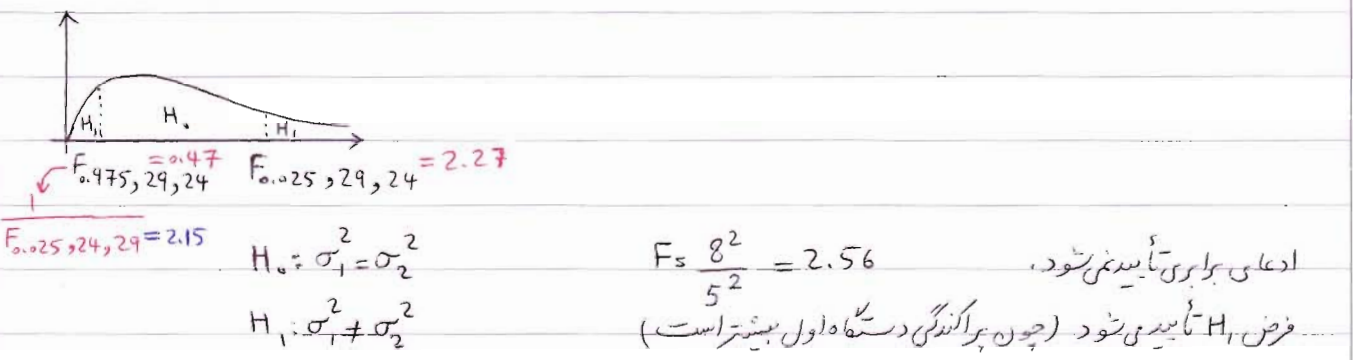 H₁ H₀ H₁
F₀.₉₇₅,₂₉,₂₄ = 0.47 F₀.₀₂₅,₂₉,₂₄ = 2.27
1
F₀.₀₂₅,₂₄,₂₉ = 2.15
H₀: σ₁² = σ₂² F = 8²/5² = 2.56 ادعای برابری تأیید نمی‌شود.
H₁: σ₁² ≠ σ₂² فرض H₁ تأیید می‌شود (چون پراکندگی دستگاه اول بیشتر است)